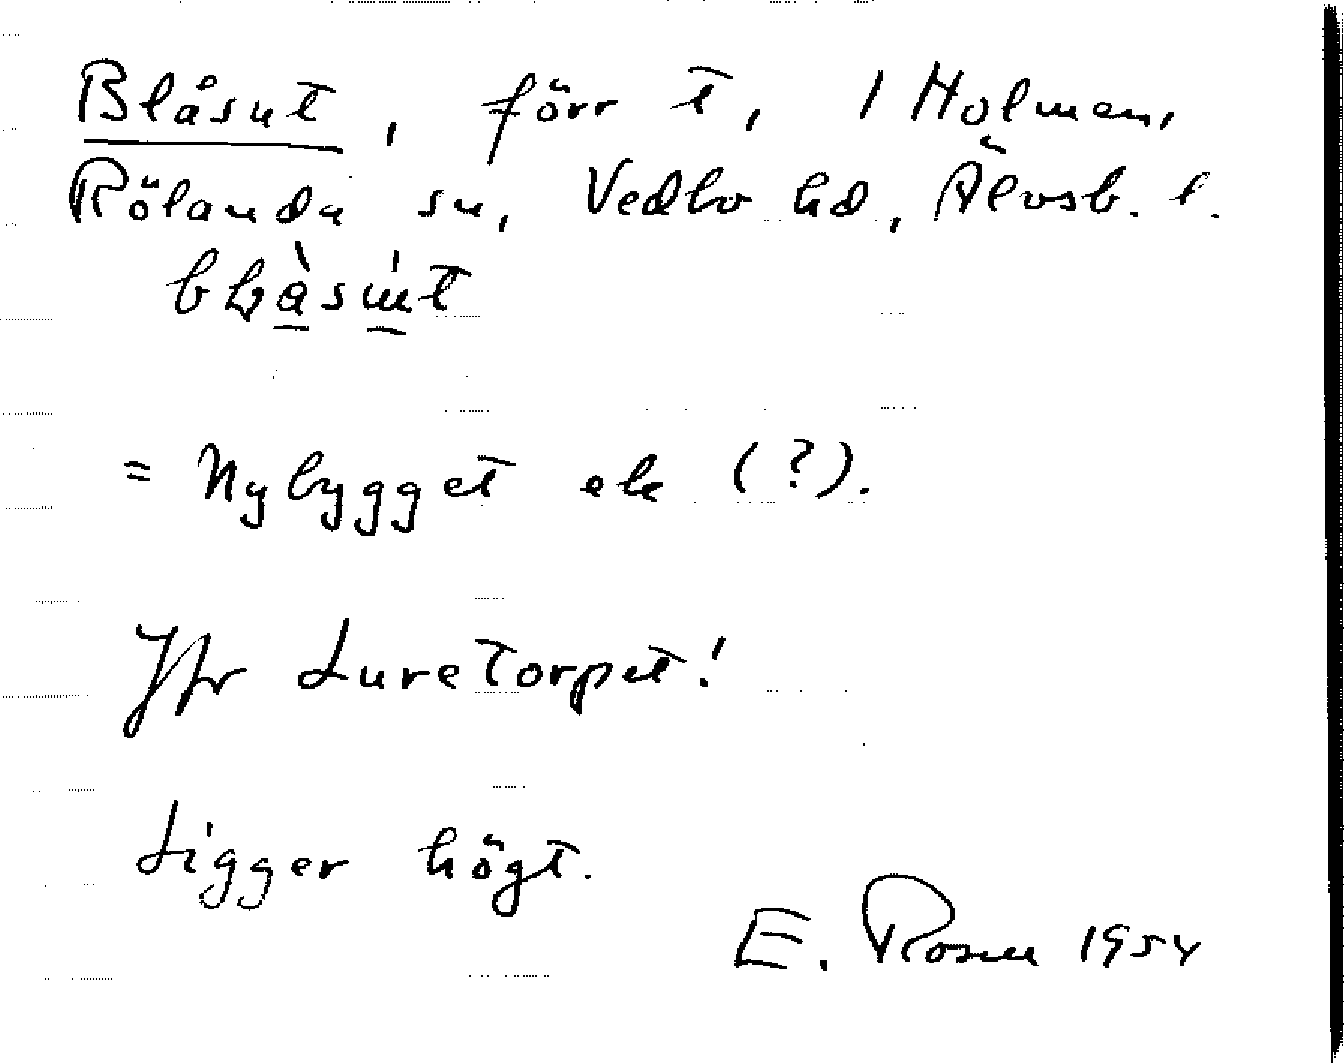 Blåsut, förr t, 1 Holmen,
Rölanda sn, Vedbo hd, Älvsb. l.
= Nybygget ek (?).
Jfr Luretorpet!
Ligger högt.
E. Rosell 1954